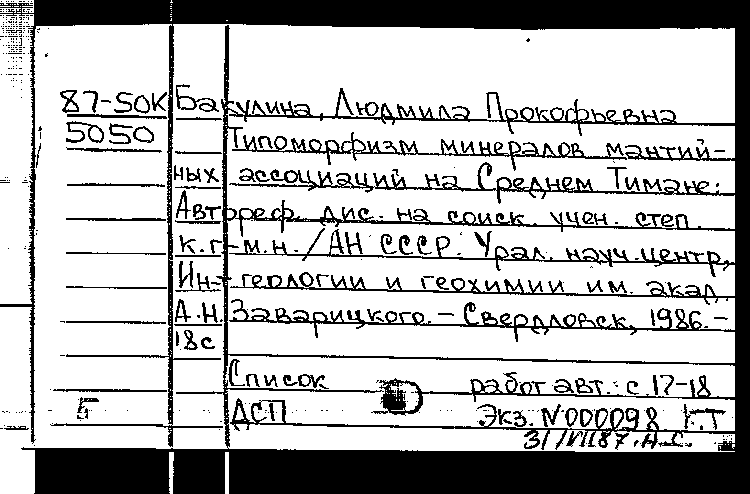 87-50К Бакулина, Людмила Прокофьевна
5050 Типоморфизм минералов мантий-
ных ассоциаций на Среднем Тимане:
Автореф. дис. на соиск. учен. степ.
к.г-м.н. / АН СССР. Урал. науч. центр,
Ин-т геологии и геохимии им. акад.
А.Н. Заварицкого. - Свердловск, 1986. -
18с
Список работ авт.: с. 17-18
Б ДСП Экз. N000098 Г.Т
31/VII87. Н.С.